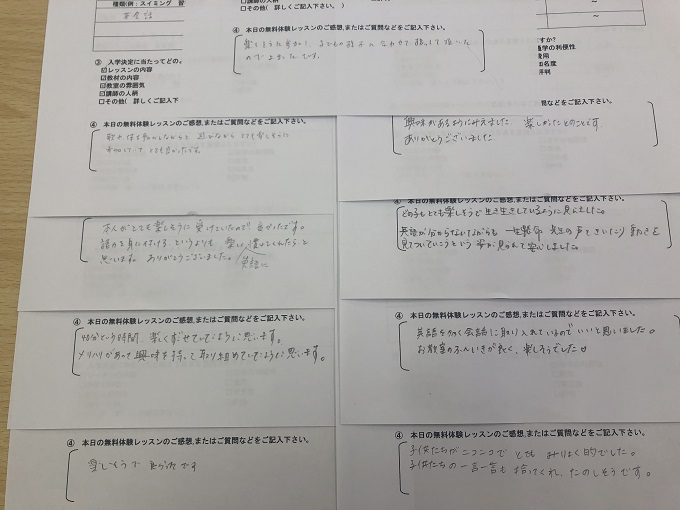 種類(例：スイミング
英会話
□その他( 詳しくご記入下さい。 )
④ 本日の無料体験レッスンのご感想,またはご質問などをご記入下さい。
③ 入学決定に当たってどの
☑レッスンの内容
☑教材の内容
☑教室の雰囲気
☑講師の人柄
□その他( 詳しくご記入下
すか?
通学の利便性
費用
知名度
評判
見などをご記入下さい。
④ 本日の無料体験レッスンのご感想,またはご質問などをご記入下さい。
とても楽しそうに
興味があるようにみえました。 楽しかったとのことです
ありがとうございました
本人がとても楽しそうに受けていたので良かったです。
語力を身に付ける、というよりも 楽しく遊んでくれたらと
思います。ありがとうございました。
英語に
④ 本日の無料体験レッスンのご感想,またはご質問などをご記入下さい。
どの子もとても楽しそうで生き生きしているように見えました。
英語が分からないながらも 一生懸命 先生の声をきいたり 動きを
見てついていこうという 姿が見られて安心しました。
④ 本日の無料体験レッスンのご感想,またはご質問などをご記入下さい。
40分という時間、楽しくすごせていたように思います。
メリハリがあって興味を持って取り組めていたように思います。
④ 本日の無料体験レッスンのご感想,またはご質問などをご記入下さい。
英語を多く会話に取り入れているのでいいと思いました。
お教室のふんいきが良く、楽しそうでした。
④ 本日の無料体験レッスンのご感想,またはご質問などをご記入下さい。
楽しそうで良かったです
④ 本日の無料体験レッスンのご感想,またはご質問などをご記入下さい。
子供たちがニコニコで とても みりょく的でした。
子供たちの一言一言も 拾ってくれ、たのしそうです。